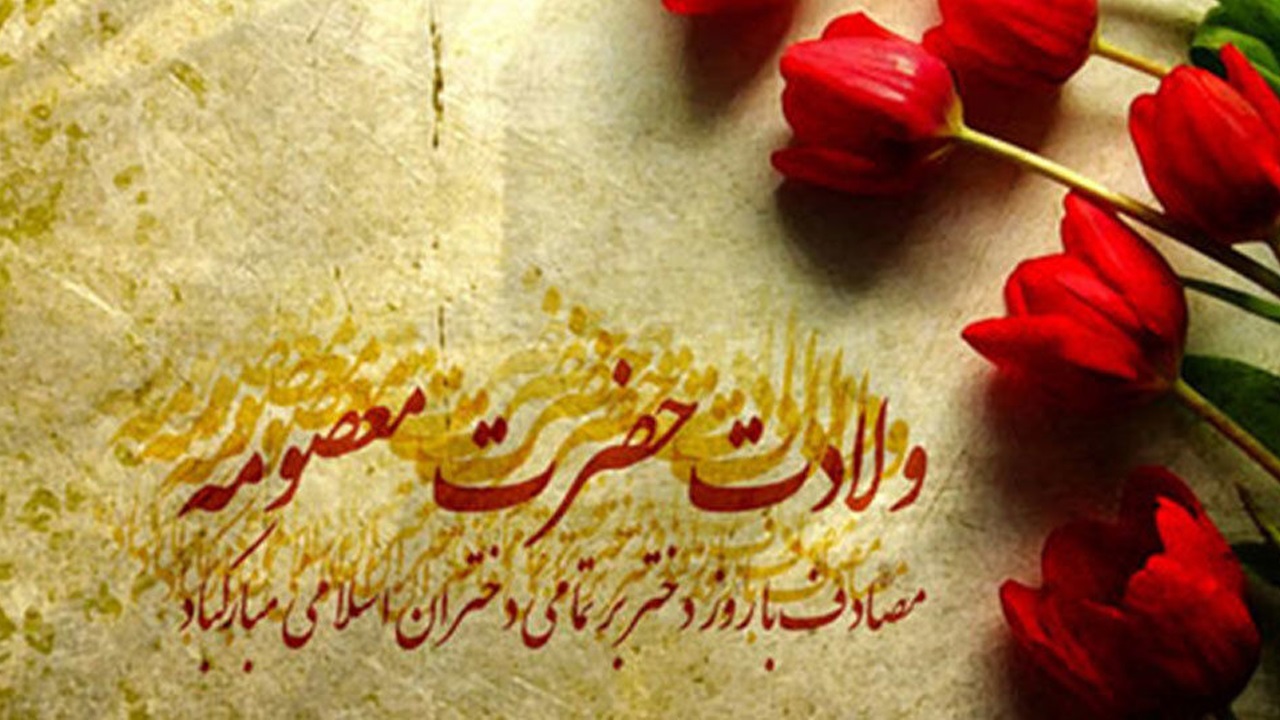 ولادت حضرت معصومه
مصادف با روز دختر بر تمامی دختران اسلامی مبارکباد